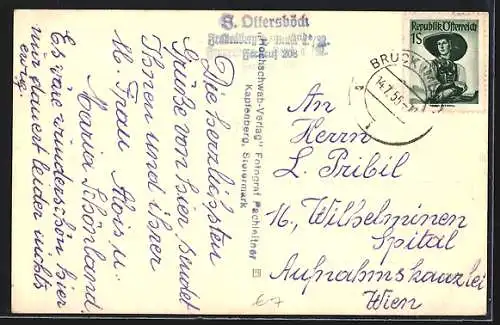 S. Ottersböck
Fernruf 208
"Hochschwab-Verlag" Fotograf Pachleitner
Kapfenberg, Steiermark
Die herzlichsten
Grüße von hier sendet
Ihnen und ihrer
M. Frau Alois u.
Maria Schönland
Es wäre wunderschön hier
nur dauert leider nichts
ewig.
Republik Österreich
1 S
BRUCK
14.7.55
An
Herrn
L. Pribil
16., Wilhelminen
Spital
Aufnahmskanzlei
Wien